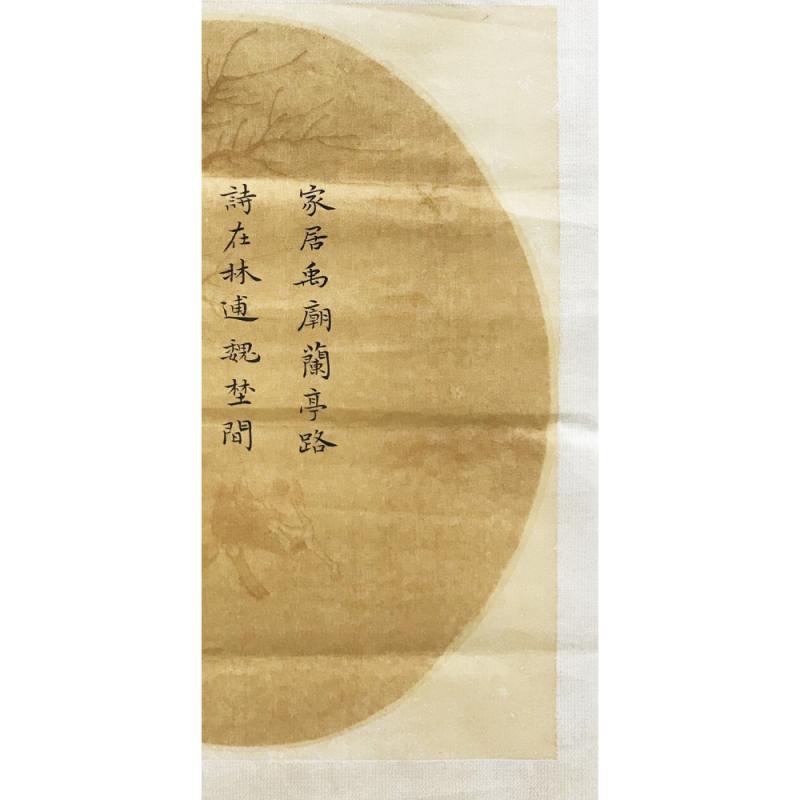 家居禹廟蘭亭路
詩在林逋魏埜間